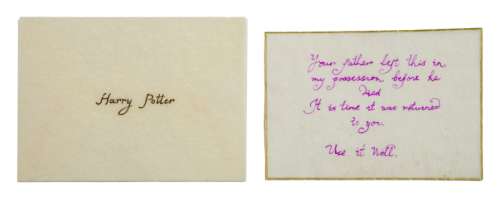 Harry Potter
Your father left this in
my possession before he
died
It is time it was returned
to you.
Use it well.